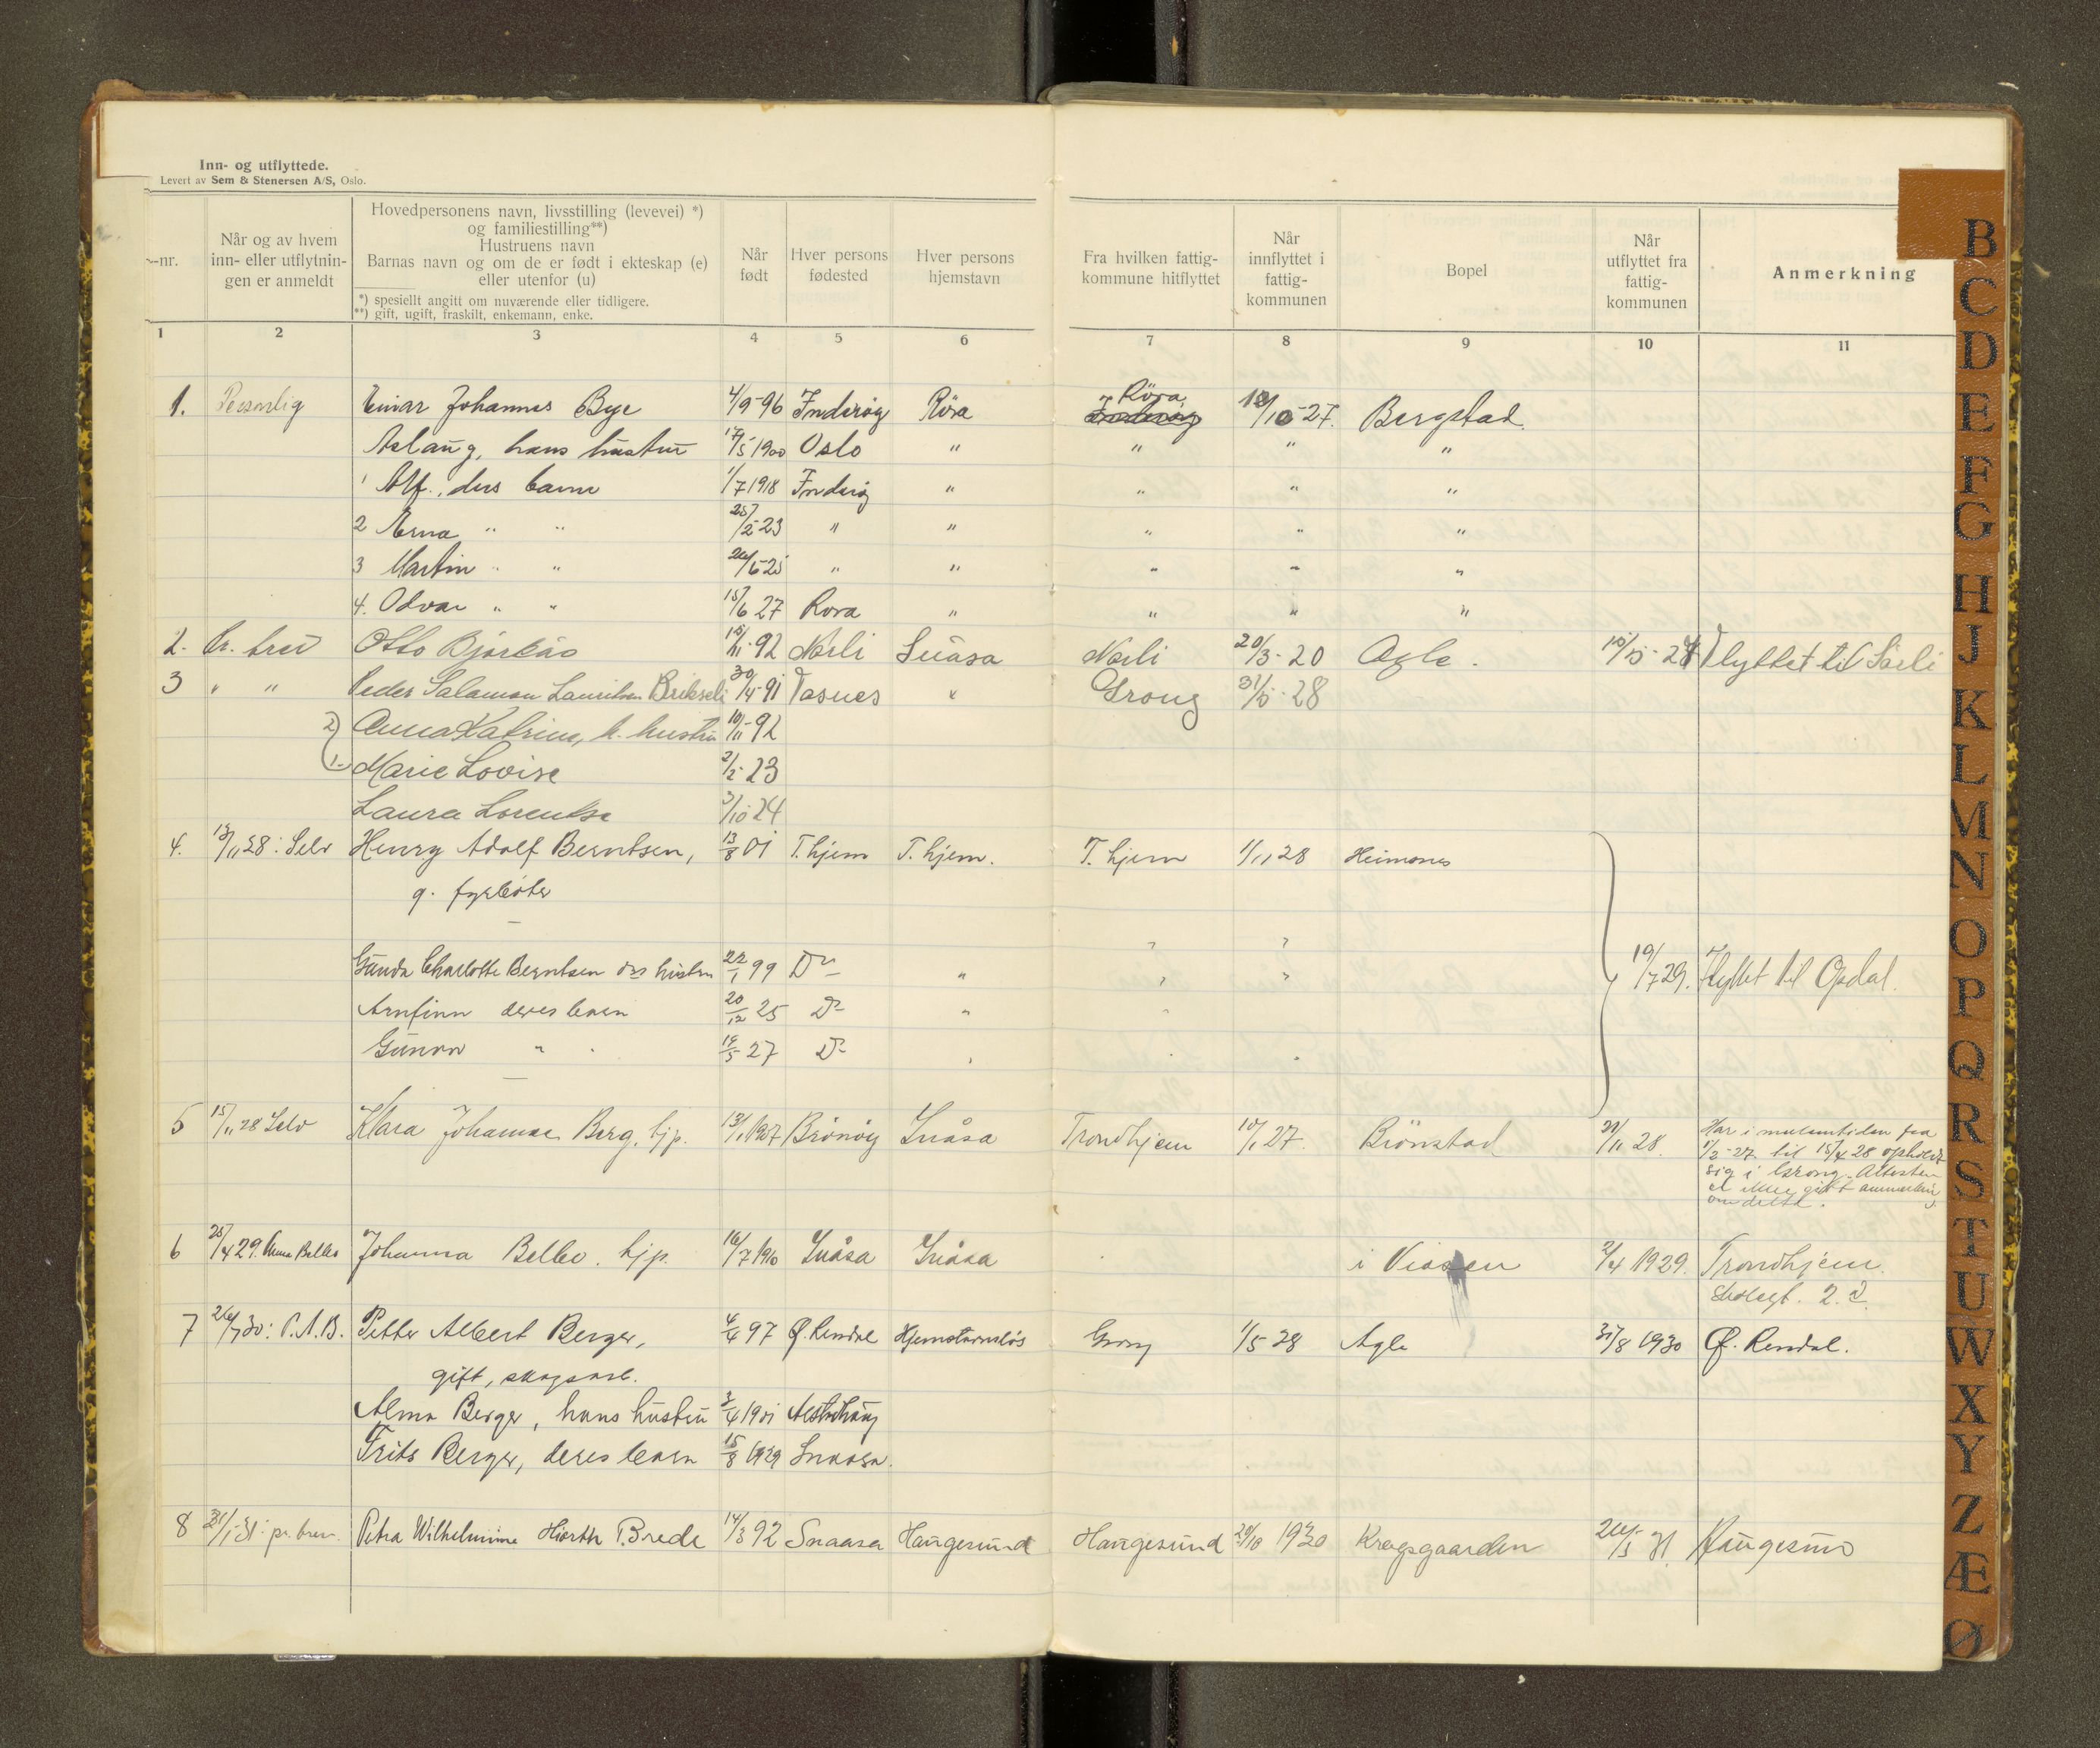 Inn- og utflyttede.
Levert av Sem & Stenersen A/S, Oslo.
-nr.
Når og av hvem
inn- eller utflytnin-
gen er anmeldt
Hovedpersonens navn, livsstilling (levevei) *)
og familiestilling**)
Hustruens navn
Barnas navn og om de er født i ekteskap (e)
eller utenfor (u)
*) spesiellt angitt om nuværende eller tidligere.
**) gift, ugift, fraskilt, enkemann, enke.
Når
født
Hver persons
fødested
Hver persons
hjemstavn
Fra hvilken fattig-
kommune hitflyttet
Når
innflyttet i
fattig-
kommunen
Bopel
Når
utflyttet fra
fattig-
kommunen
Anmerkning
1 2 3 4 5 6 7 8 9 10 11
1. Personlig Einar Johannes Bye 4/9-96 Inderøy Röra Röra /10-27. Bergstad
Aslaug, hans hustru 17/5 1900 Oslo " " " "
1 Alf, deres barn 1/7 1918 Inderøy " " " "
2 Erna " " 25/2-23 " " " " "
3 Martin " " 26/6-25 " " " " "
4. Odvar " " 15/6 27 Rora " " " "
2. Pr. brev Otto Bjørkås 15/11-92 Norli Snåsa Norli 20/3-20 Agle. Flyttet til Sørli
3 " " Peder Salamon 30/4-91 " Grong 31/5-28
2) Anna Katrine, h. hustru 10/11-92
1. Marie Lovise 2/2-23
Laura Lorentse 3/10 24
4. 13/11 28: Selv Henry Adolf Berntsen, 13/8 01 T.hjem T.hjem. T.hjem 1/11 28 Heimones
g. fyrbøter
Gunda Charlotte Berntsen hustru 22/1 99 Do " " " 19/7 29. Flyttet til Opdal.
Arnfinn deres barn 20/12 25 Do "
Gunvor " " 19/5 27 Do "
5 15/11 28 Selv Klara Johanne Berg, hjp. 13/1 1907 Brönöy Snåsa Trondhjem 10/1 27. Brönstad 21/11 28. Har i mellemtiden fra
1/2-27 til 15/4 28 opholdt
sig i Grong. Attesten
er ikke gitt anmerkning
om dette.
6 25/4 29. Anna Belbo Johanna Belbo. hjp. 16/7 1910 Snåsa Snåsa i Viosen 2/4 1929. Trondhjem.
7 26/7 30: P.A.B. Petter Albert Berger, 4/4 97 Ø. Rendal Hjemstavnsløs Grong 1/5 28 Agle 31/8 1930 Ø. Rendal.
gift, skogsarb.
Alma Berger, hans hustru 3/4 1901 Alstahaug
Frits Berger, deres barn 15/8 1929 Snaasa.
8 31/1-31: pr. brev. Petra Wilhelmine Hiorth Brede 14/3 92 Snaasa Haugesund Haugesund 29/10 1930 Kragsgaarden 24/1 31. Haugesund
B
C
D
E
F
G
H
J
K
L
M
N
O
P
Q
R
S
T
U
W
X
Y
Z
Æ
Ø